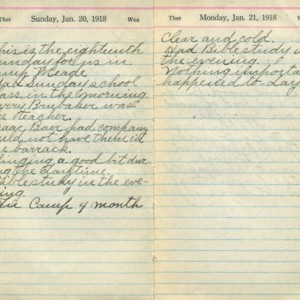 Ther Sunday, Jan. 20, 1918 Wea
his is the eighteenth
unday for us in
amp Meade
ad Sunday school
ass in the morning
rry Brubaker was
e teacher.
Baer had company
ould not have them in
e barrack.
inging a good bit dur
ng the daytime.
ible study in the eve-
ing.
Camp 4 month
Ther Monday, Jan. 21, 1918
Clear and cold.
Had Bible study i
the evening.
Nothing importa
happened to day